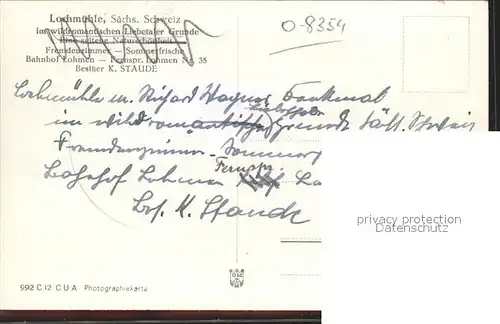 Lochmühle, Sächs. Schweiz
im wildromantischen Liebetaler Grunde
Eine seltene Naturschönheit
Fremdenzimmer — Sommerfrische
Bahnhof Lohmen — Fernspr. Lohmen Nr. 35
Besitzer K. STAUDE
O-8354
Lochmühle m. Richard Wagner Denkmal
im wildromantischen Liebethaler Grunde Sächs. Schweiz
Fremdenzimmer - Sommerf
Bahnhof Lohmen Fernspr. Lo
Bes. K. Staude
privacy protection
Datenschutz
992 C 12 C U A Photographiekarte